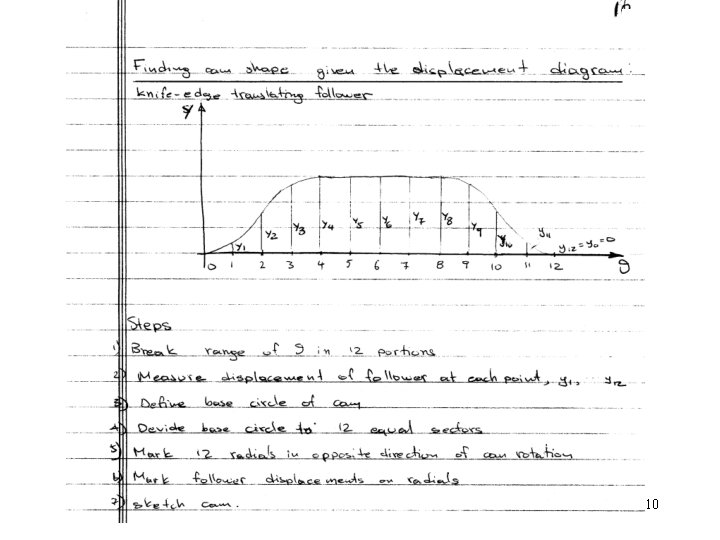 Finding cam shape given the displacement diagram:
knife-edge translating follower
y
y1 y2 y3 y4 y5 y6 y7 y8 y9 y10 y11 y12=y0=0
0 1 2 3 4 5 6 7 8 9 10 11 12 θ
Steps
1) Break range of θ in 12 portions
2) Measure displacement of follower at each point, y1, y12
3) Define base circle of cam
4) Devide base circle to 12 equal sectors
5) Mark 12 radials in opposite direction of cam rotation
6) Mark follower displacements on radials
7) sketch cam.
10